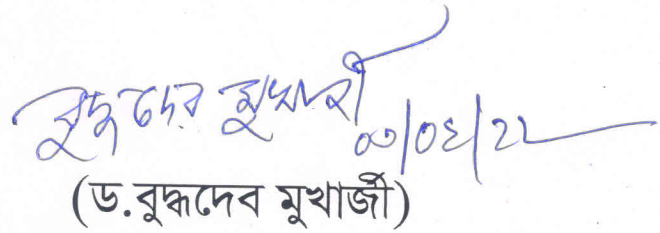 বুদ্ধদেব মুখার্জী
০৩/০২/২২
(ড.বুদ্ধদেব মুখার্জী)